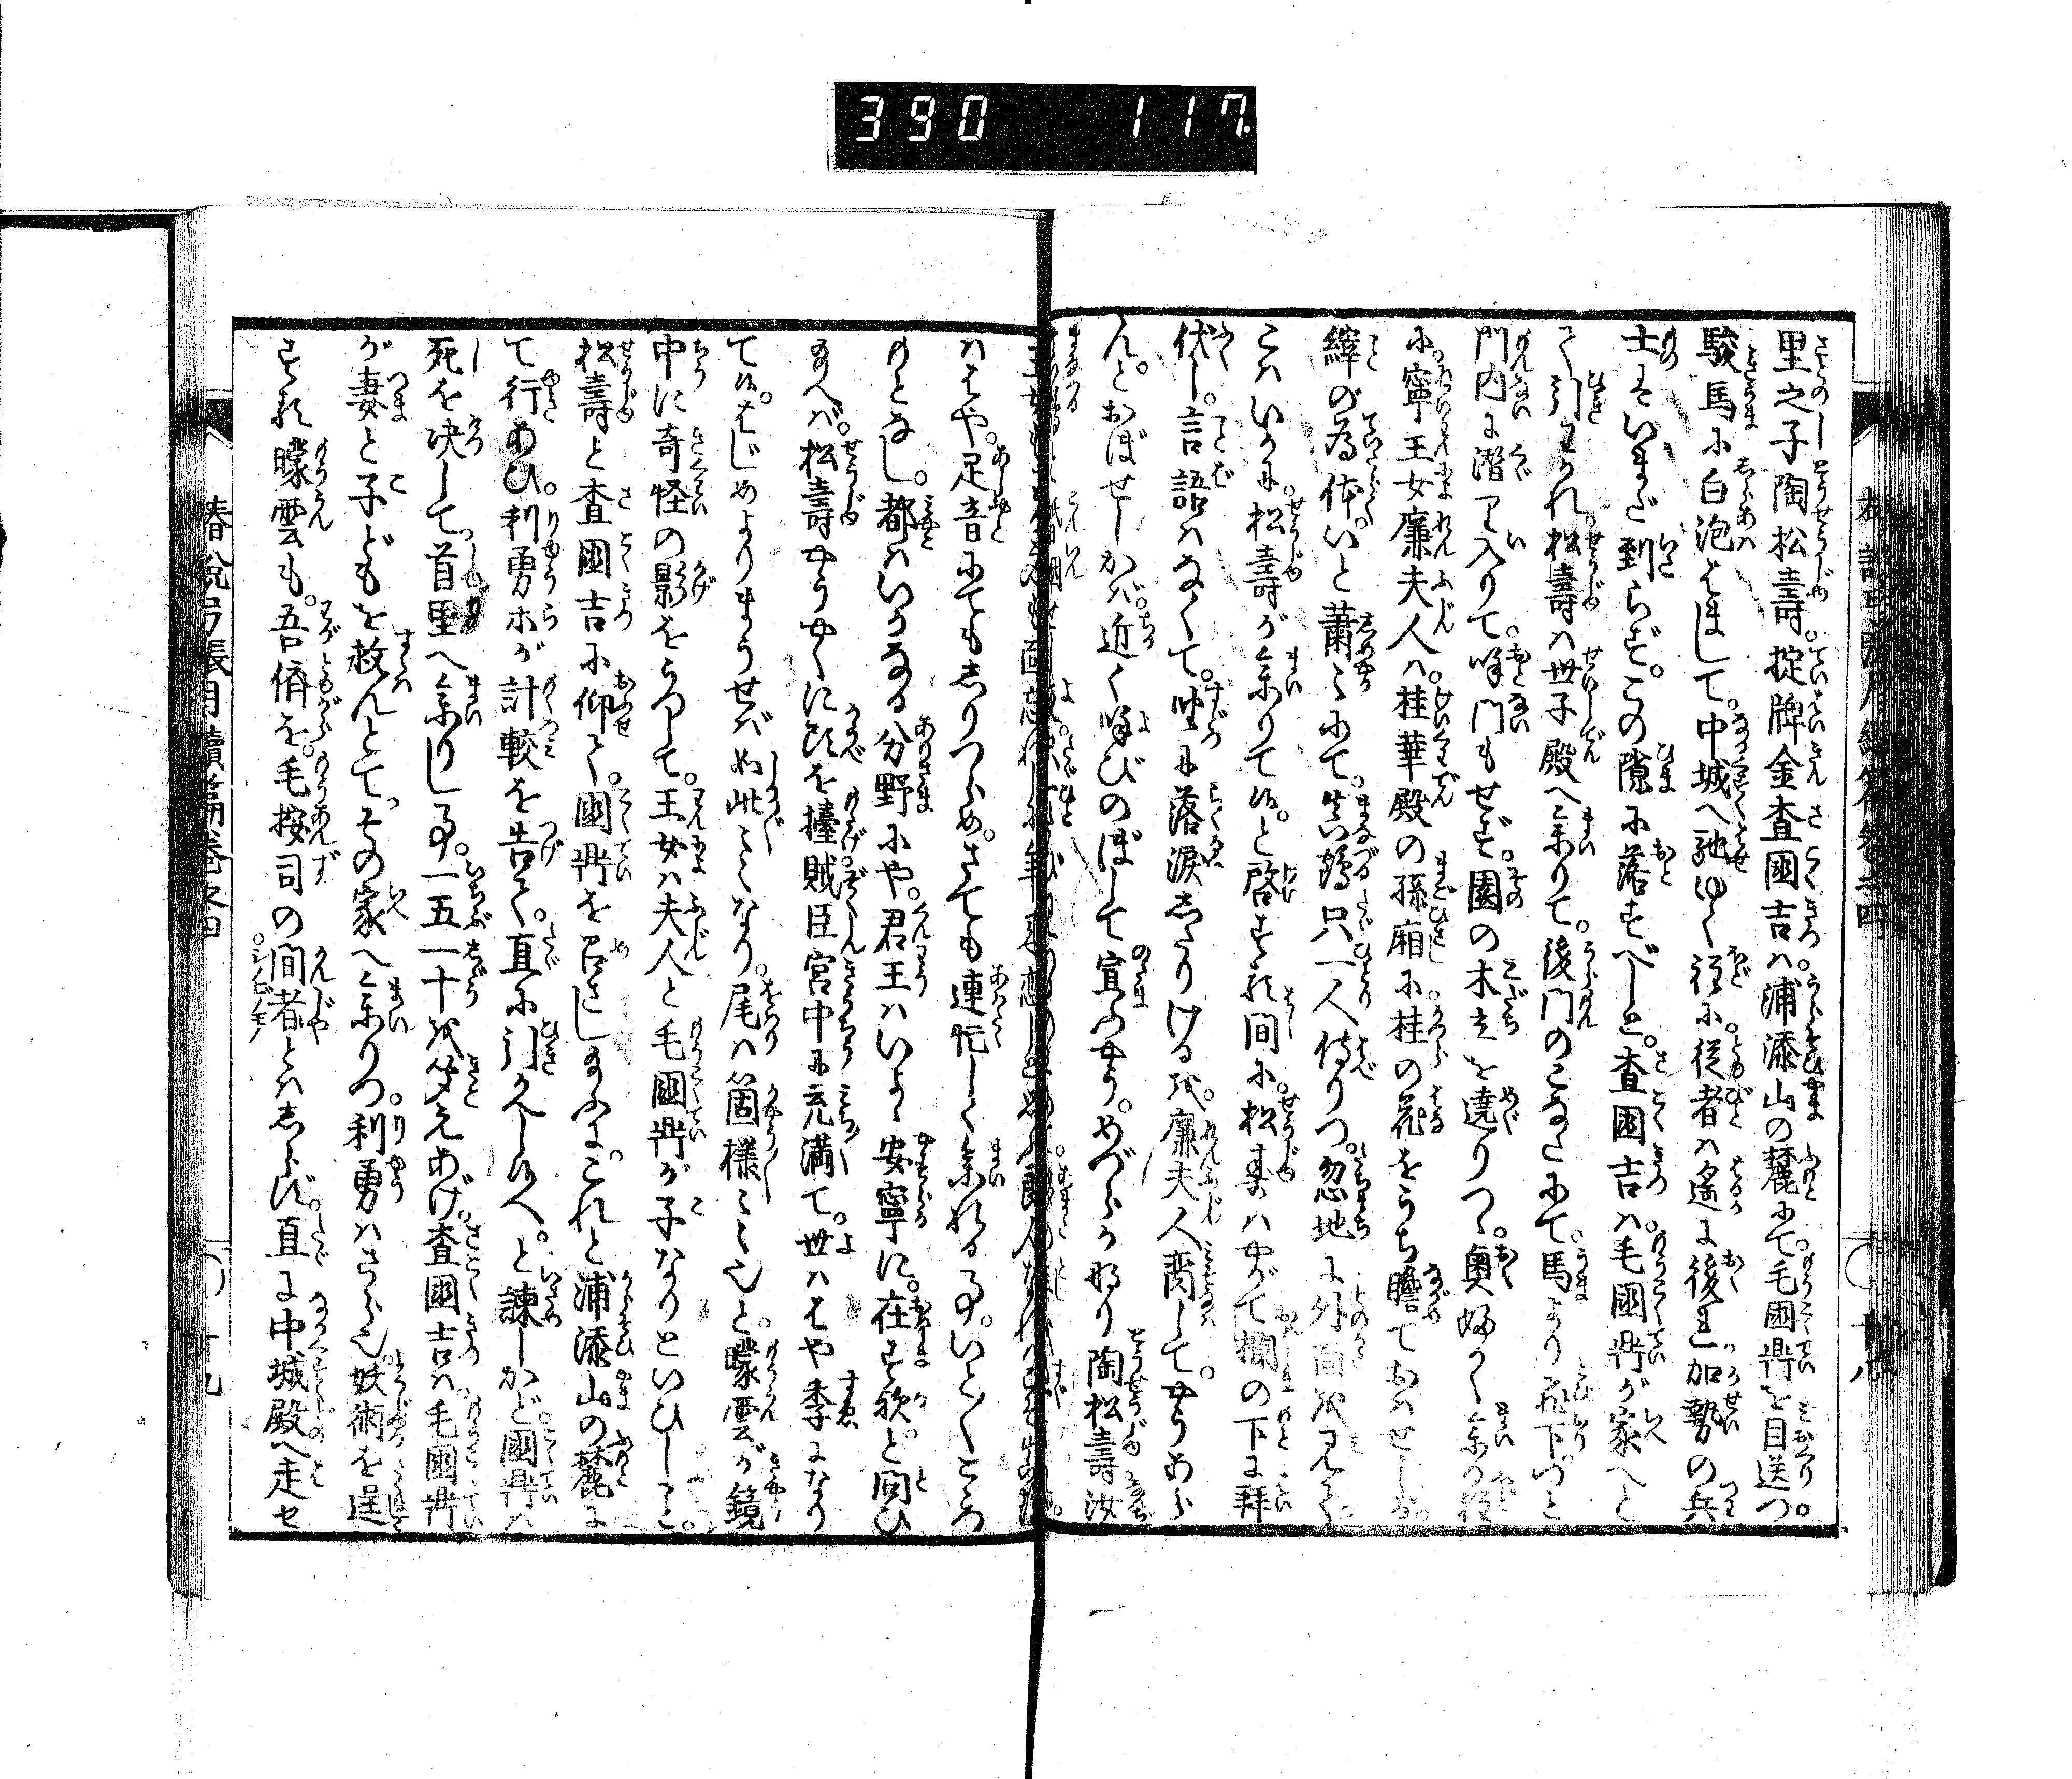 390 117
里之子陶松壽。掟牌金査國吉ハ。浦添山の麓にて。毛國鼎を目送つ。
駿馬に白泡はまして。中城へ馳ゆく程に。従者ハ遙に後れ。加勢の兵
士もいまだ到らず。この隙に落すべしと。査國吉ハ。毛國鼎が家へと
て引わかれ。松壽ハ世子殿へ参りて。後門のこなたにて。馬より飛下りつと
門内に潜び入りて。呼門もせず。園の木立を遶りつゝ。奥ふかく参る程
に。寧王女廉夫人ハ。桂華殿の孫廂に。桂の花をうち瞻ておはせしが。
縡の為体。いと蕭々にて。真鶴只一人侍りつ。忽地に外面を見て
こハいかに。松壽が参りて候。と啓する間に。松壽ハやがて欄の下に拜
伏し。言語ハなくて。坐に落涙したりける。廉夫人商して。やうあら
ん。とおぼせしかば。近く呼びのぼして宣ふやう。めづらかなり陶松壽。汝
ハはや。足音にてもしりつらめ。さても連忙しく参れる事。いと〱こゝろ
のとなし。都ハいかなる分野にや。君王ハいよゝ安寧に。在す歟。と問ひ
給へば。松壽やうやくに頭を擡。賊臣宮中に充満て。世ハはや季になり
て候。はじめよりまうせば如此々々なり。尾ハ箇様々々也と。曚雲が鏡
中に奇怪の影をうつして。王女ハ夫人と毛國鼎が子なりといひしこと。
松壽と査國吉に仰て。國鼎を召さし給ふに。これと浦添山の麓に
て行あひ。利勇ホが計較を告て。直に引かへし候へ。と諫しかど。國鼎ハ
死を决して。首里へ参りし事。一五一十を聞えあげ。査國吉ハ。毛國鼎
が妻と子どもを救んとて。その家へ参りつ。利勇ハさら也。妖術を逞
する曚雲も。吾儕を。毛按司の間者とハしらず。直に中城殿へ走せ
シノビモノ
椿説弓張月續篇巻之四